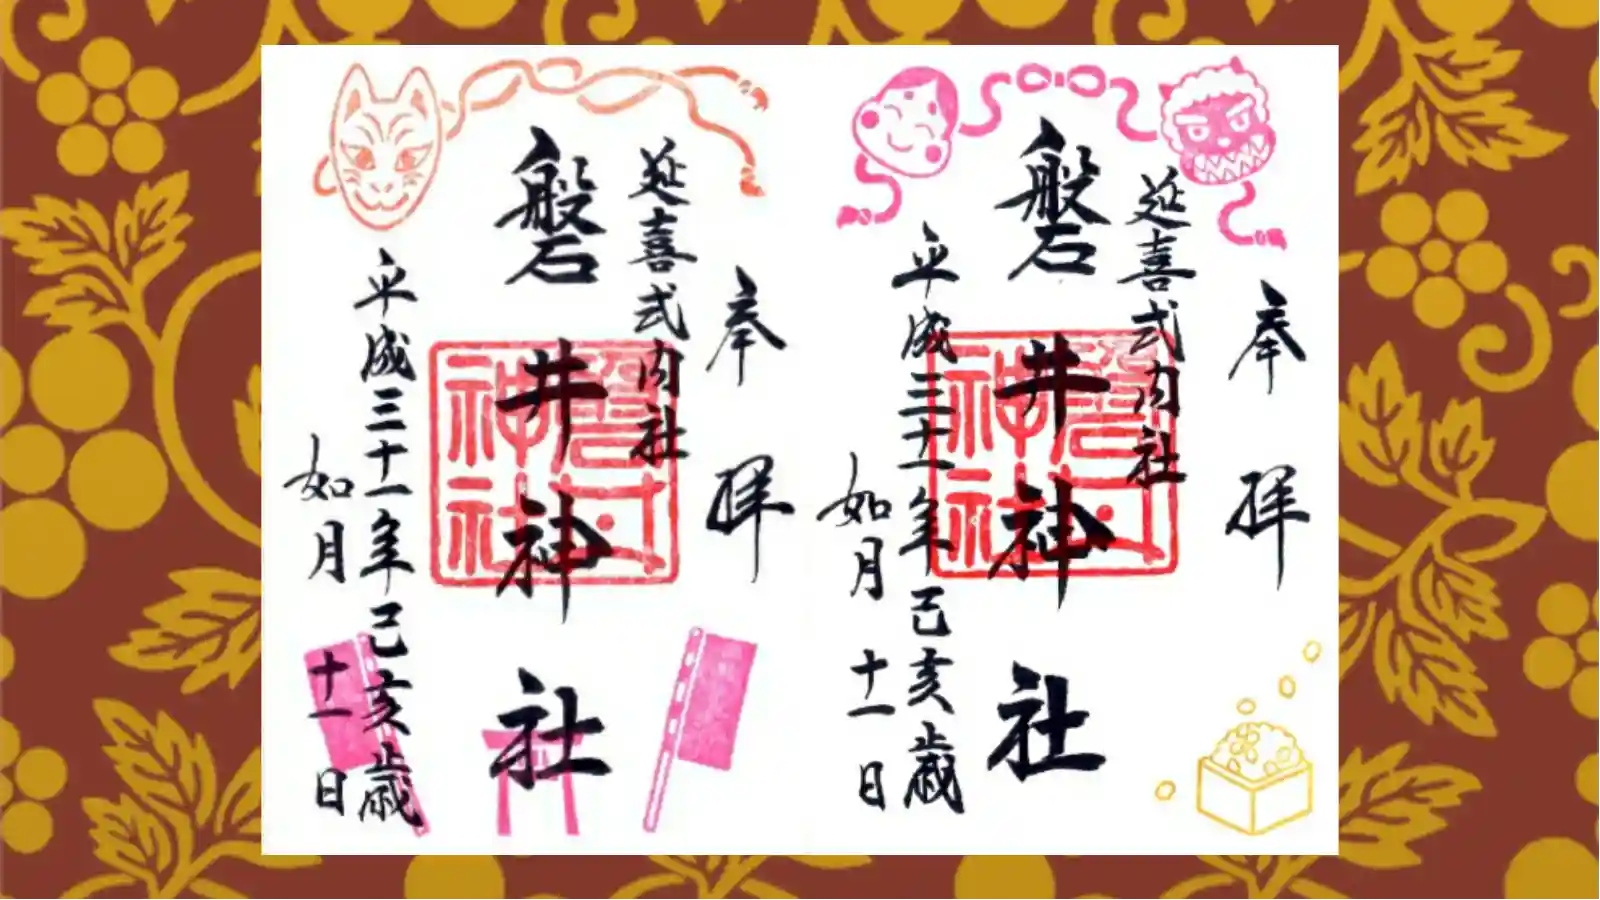 奉拝
延喜式内社
磐井神社
磐井神社
平成三十一年己亥歳
如月十一日
奉拝
延喜式内社
磐井神社
磐井神社
平成三十一年己亥歳
如月十一日